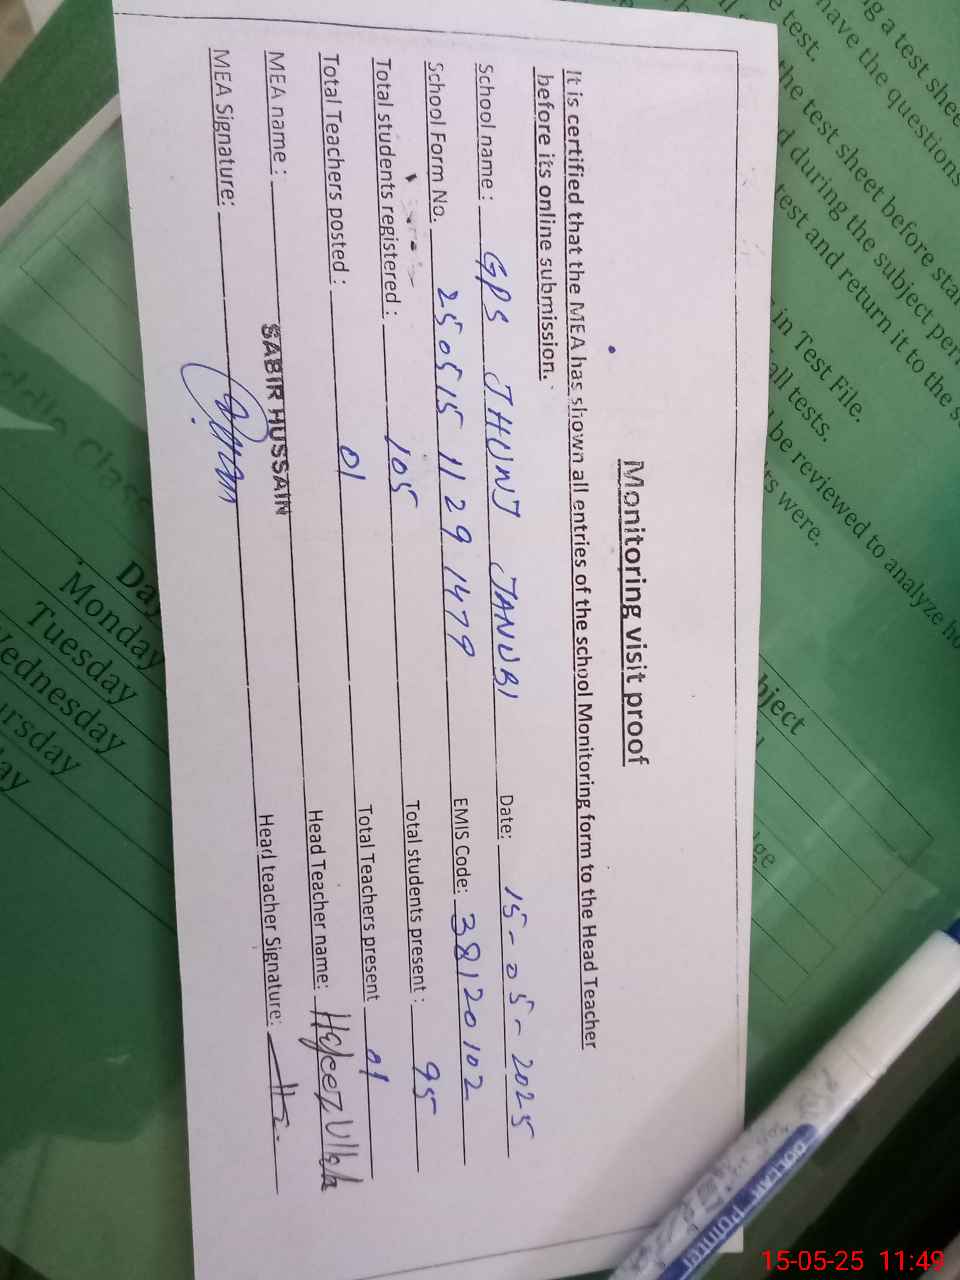 Monitoring visit proof
It is certified that the MEA has shown all entries of the school Monitoring form to the Head Teacher
before its online submission.
School name: GPS JHUNJ JANUBI Date: 15-05-2025
School Form No. 250515 1129 1479 EMIS Code: 38120102
Total students registered: 105 Total students present: 95
Total Teachers posted: 01 Total Teachers present 01
MEA name: SABIR HUSSAIN Head Teacher name:
MEA Signature: Head teacher Signature:
g a test shee
have the questions
e test.
the test sheet before sta
d during the subject peri
test and return it to the s
in Test File.
all tests.
be reviewed to analyze ho
rs were.
bject
ge
Day
Monday
Tuesday
Wednesday
ursday
ay
DOLLAR Pointer
15-05-25 11:49